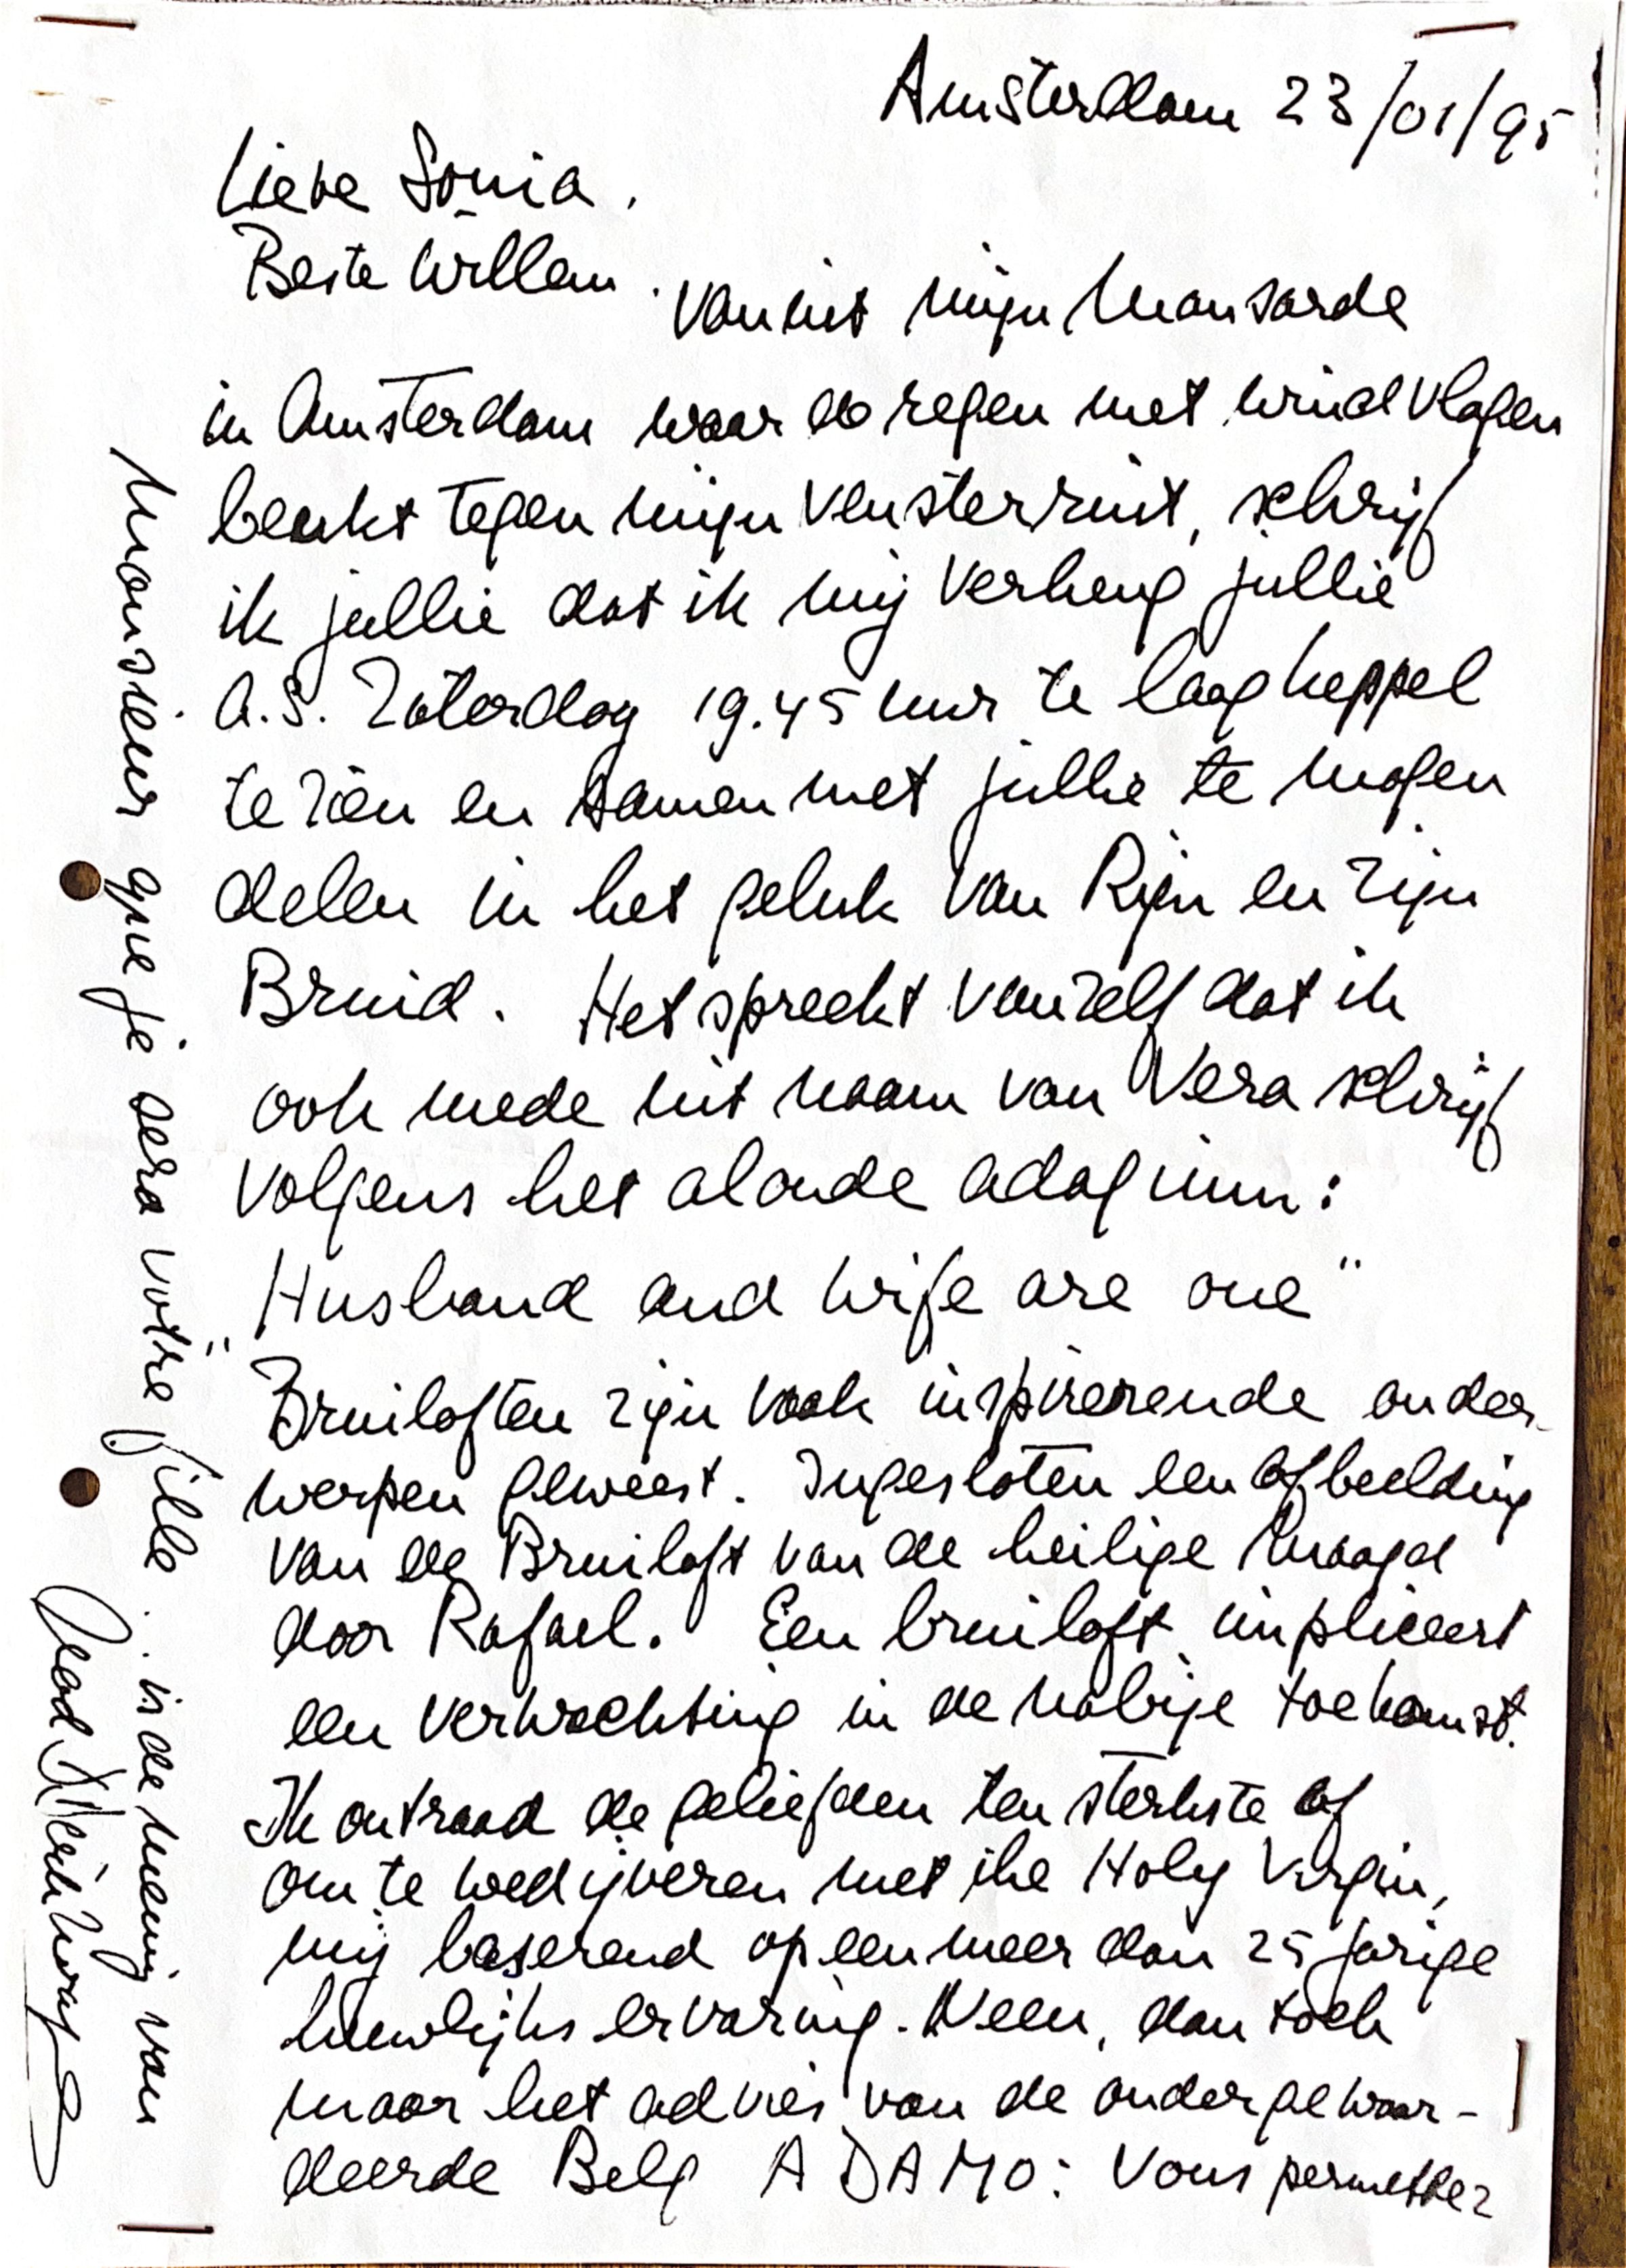 Amsterdam 23/01/95
Lieve Sonia.
Beste Willem.
Vanuit mijn Mansarde
in Amsterdam waar de regen met windvlagen
beukt tegen mijn vensterruit, schrijf
ik jullie dat ik mij verheug jullie
a.s. Zaterdag 19.45 uur te laag keppel
te zien en samen met jullie te mogen
delen in het geluk van Rijn en zijn
Bruid. Het spreekt vanzelf dat ik
ook mede uit naam van Vera schrijf
volgens het aloude adagium:
"Husband and wife are one"
Bruiloften zijn vaak inspirerende onder-
werpen geweest. Ingesloten een afbeelding
van de Bruiloft van de heilige Maagd
door Rafael. Een bruiloft impliceert
een verwachting in de nabije toekomst.
Ik ontraad de geliefden ten sterkste af
om te wedijveren met the Holy Virgin,
mij baserend op een meer dan 25 jarige
huwlijks ervaring. Neen, dan toch
maar het advies van de ondergewaar-
deerde Belg ADAMO: Vous permettez
Monsieur que je sera votre fille
.. is de mening van